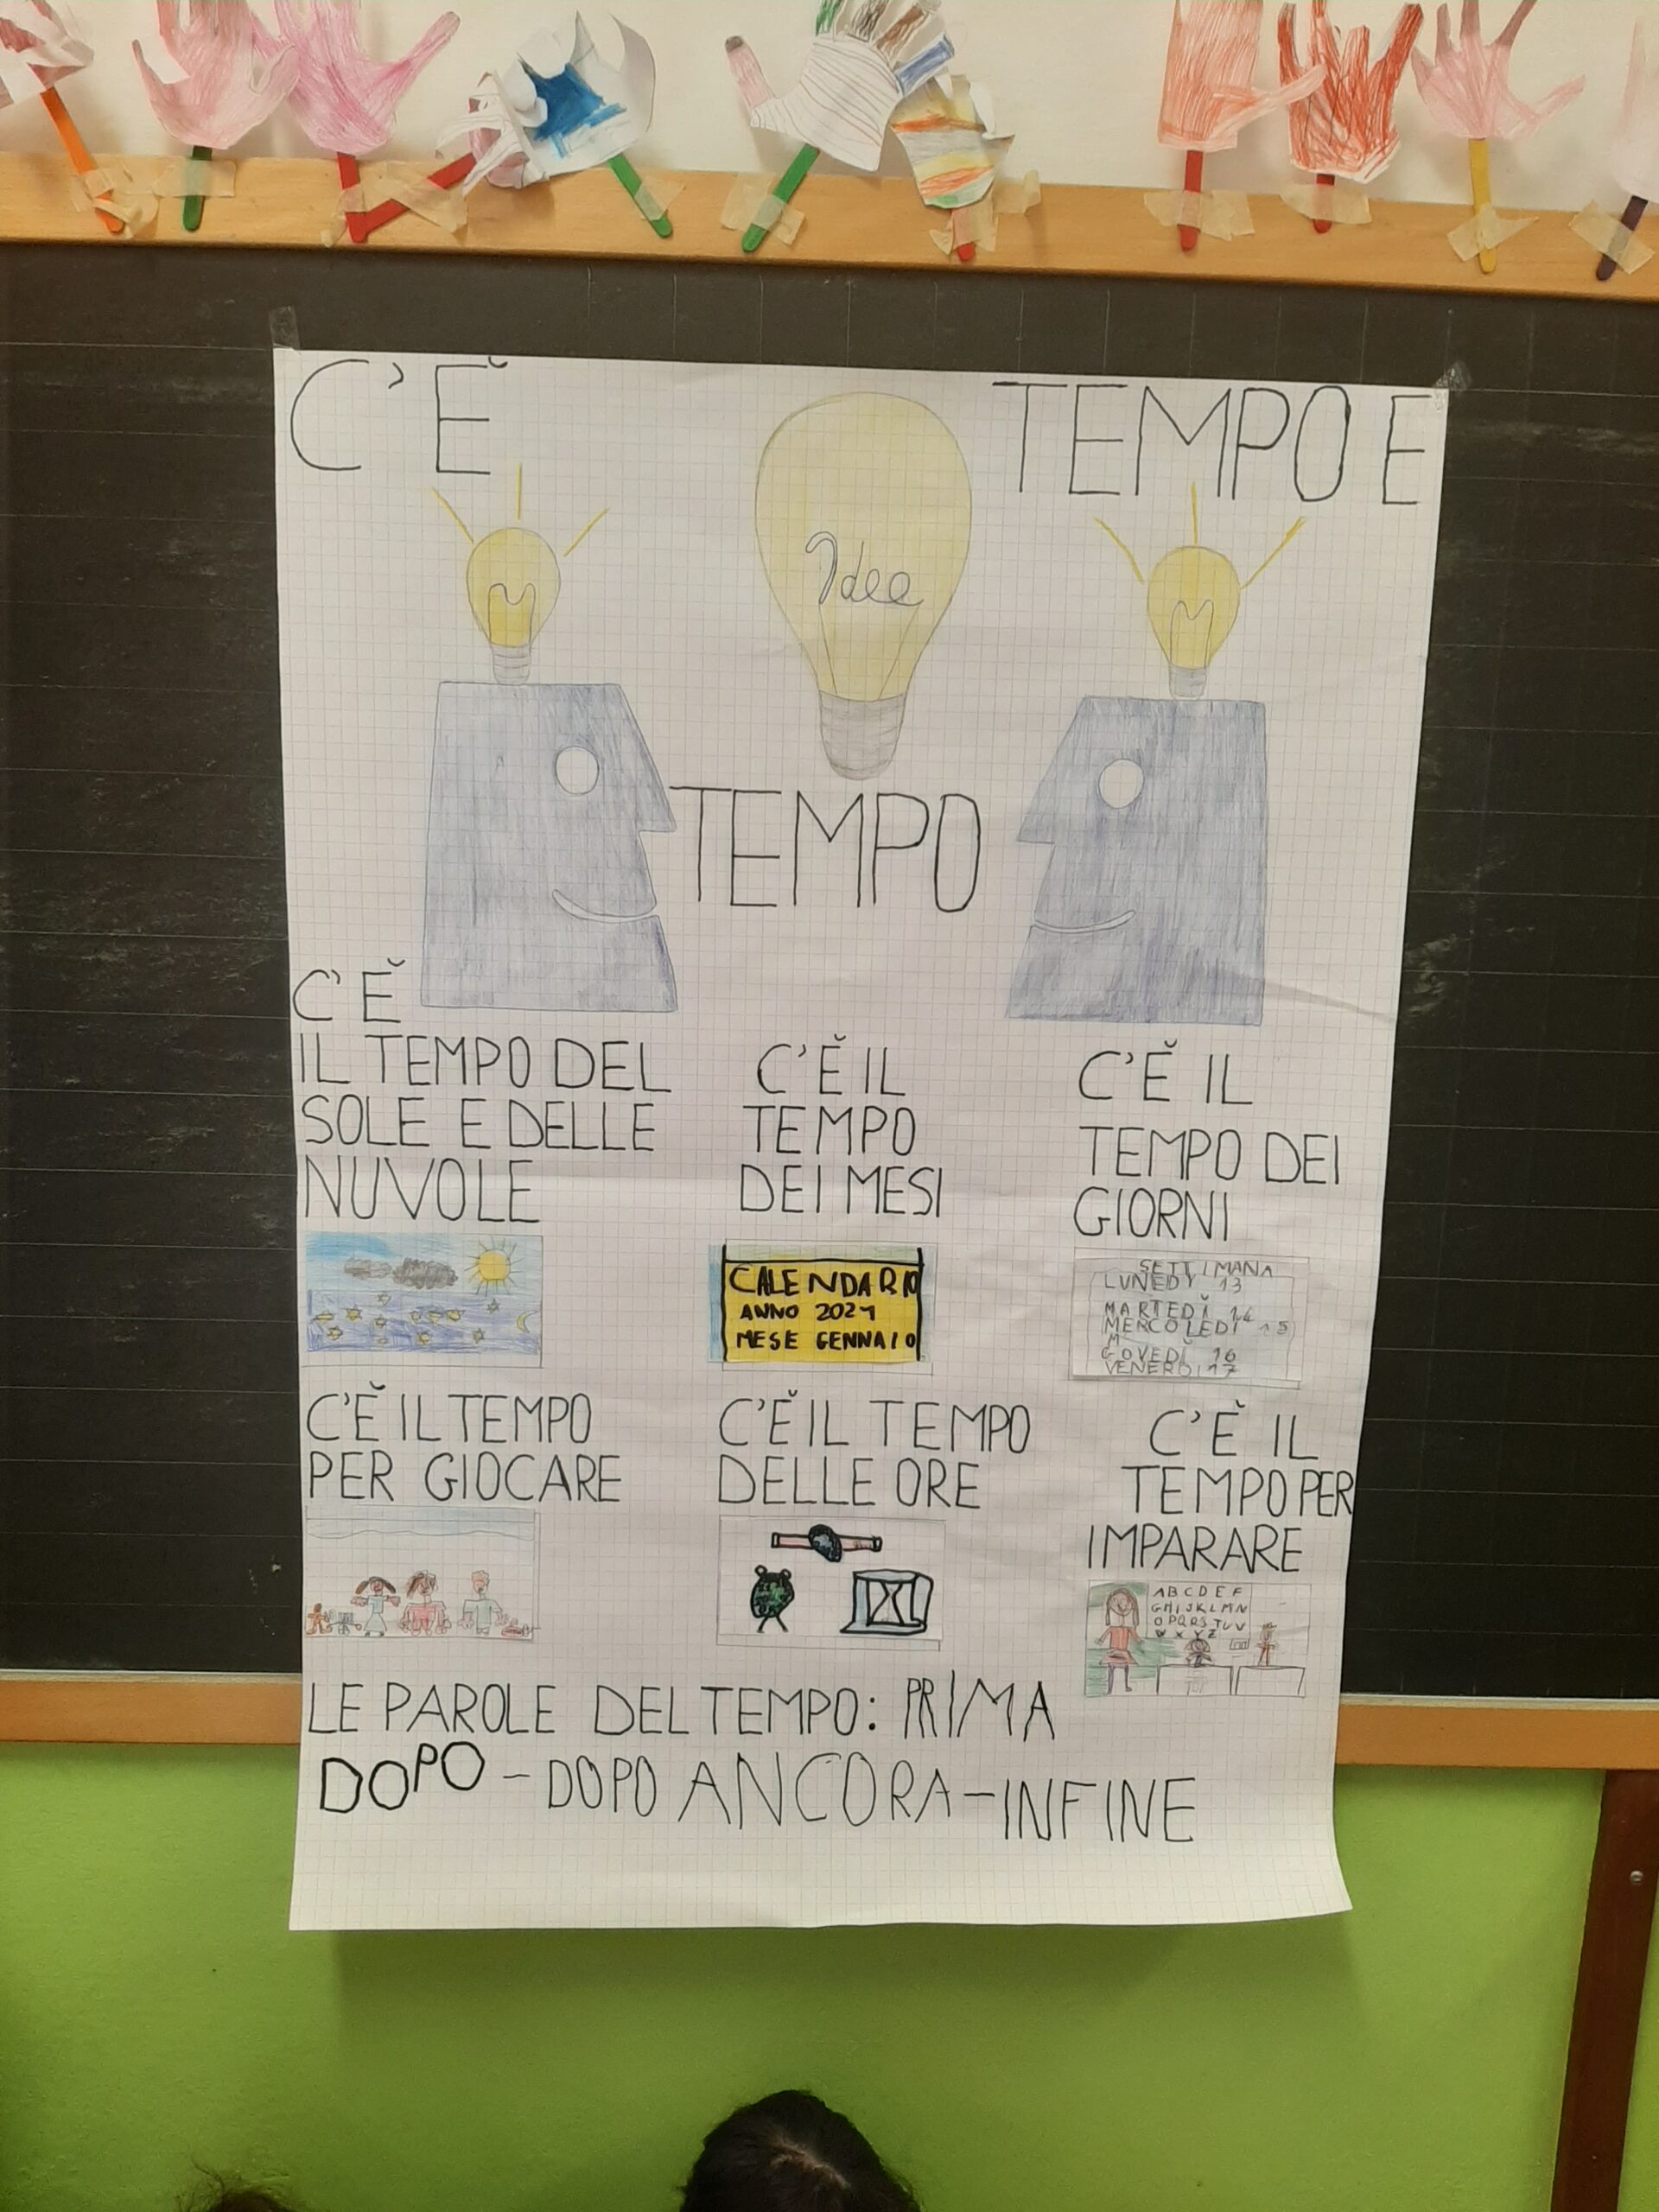 C'È TEMPO E
Idee
TEMPO
C'È
IL TEMPO DEL
SOLE E DELLE
NUVOLE
C'È IL
TEMPO
DEI MESI
C'È IL
TEMPO DEI
GIORNI
CALENDARIO
ANNO 2021
MESE GENNAIO
SETTIMANA
LUNEDÌ 13
MARTEDÌ 14
MERCOLEDÌ 15
M
GOVEDÌ 16
VENERDI 17
C'È IL TEMPO
PER GIOCARE
C'È IL TEMPO
DELLE ORE
C'È IL
TEMPO PER
IMPARARE
A B C D E F
G H I J K L M N
O P Q R S T U V
W X Y Z
LE PAROLE DEL TEMPO: PRIMA
DOPO - DOPO ANCORA - INFINE